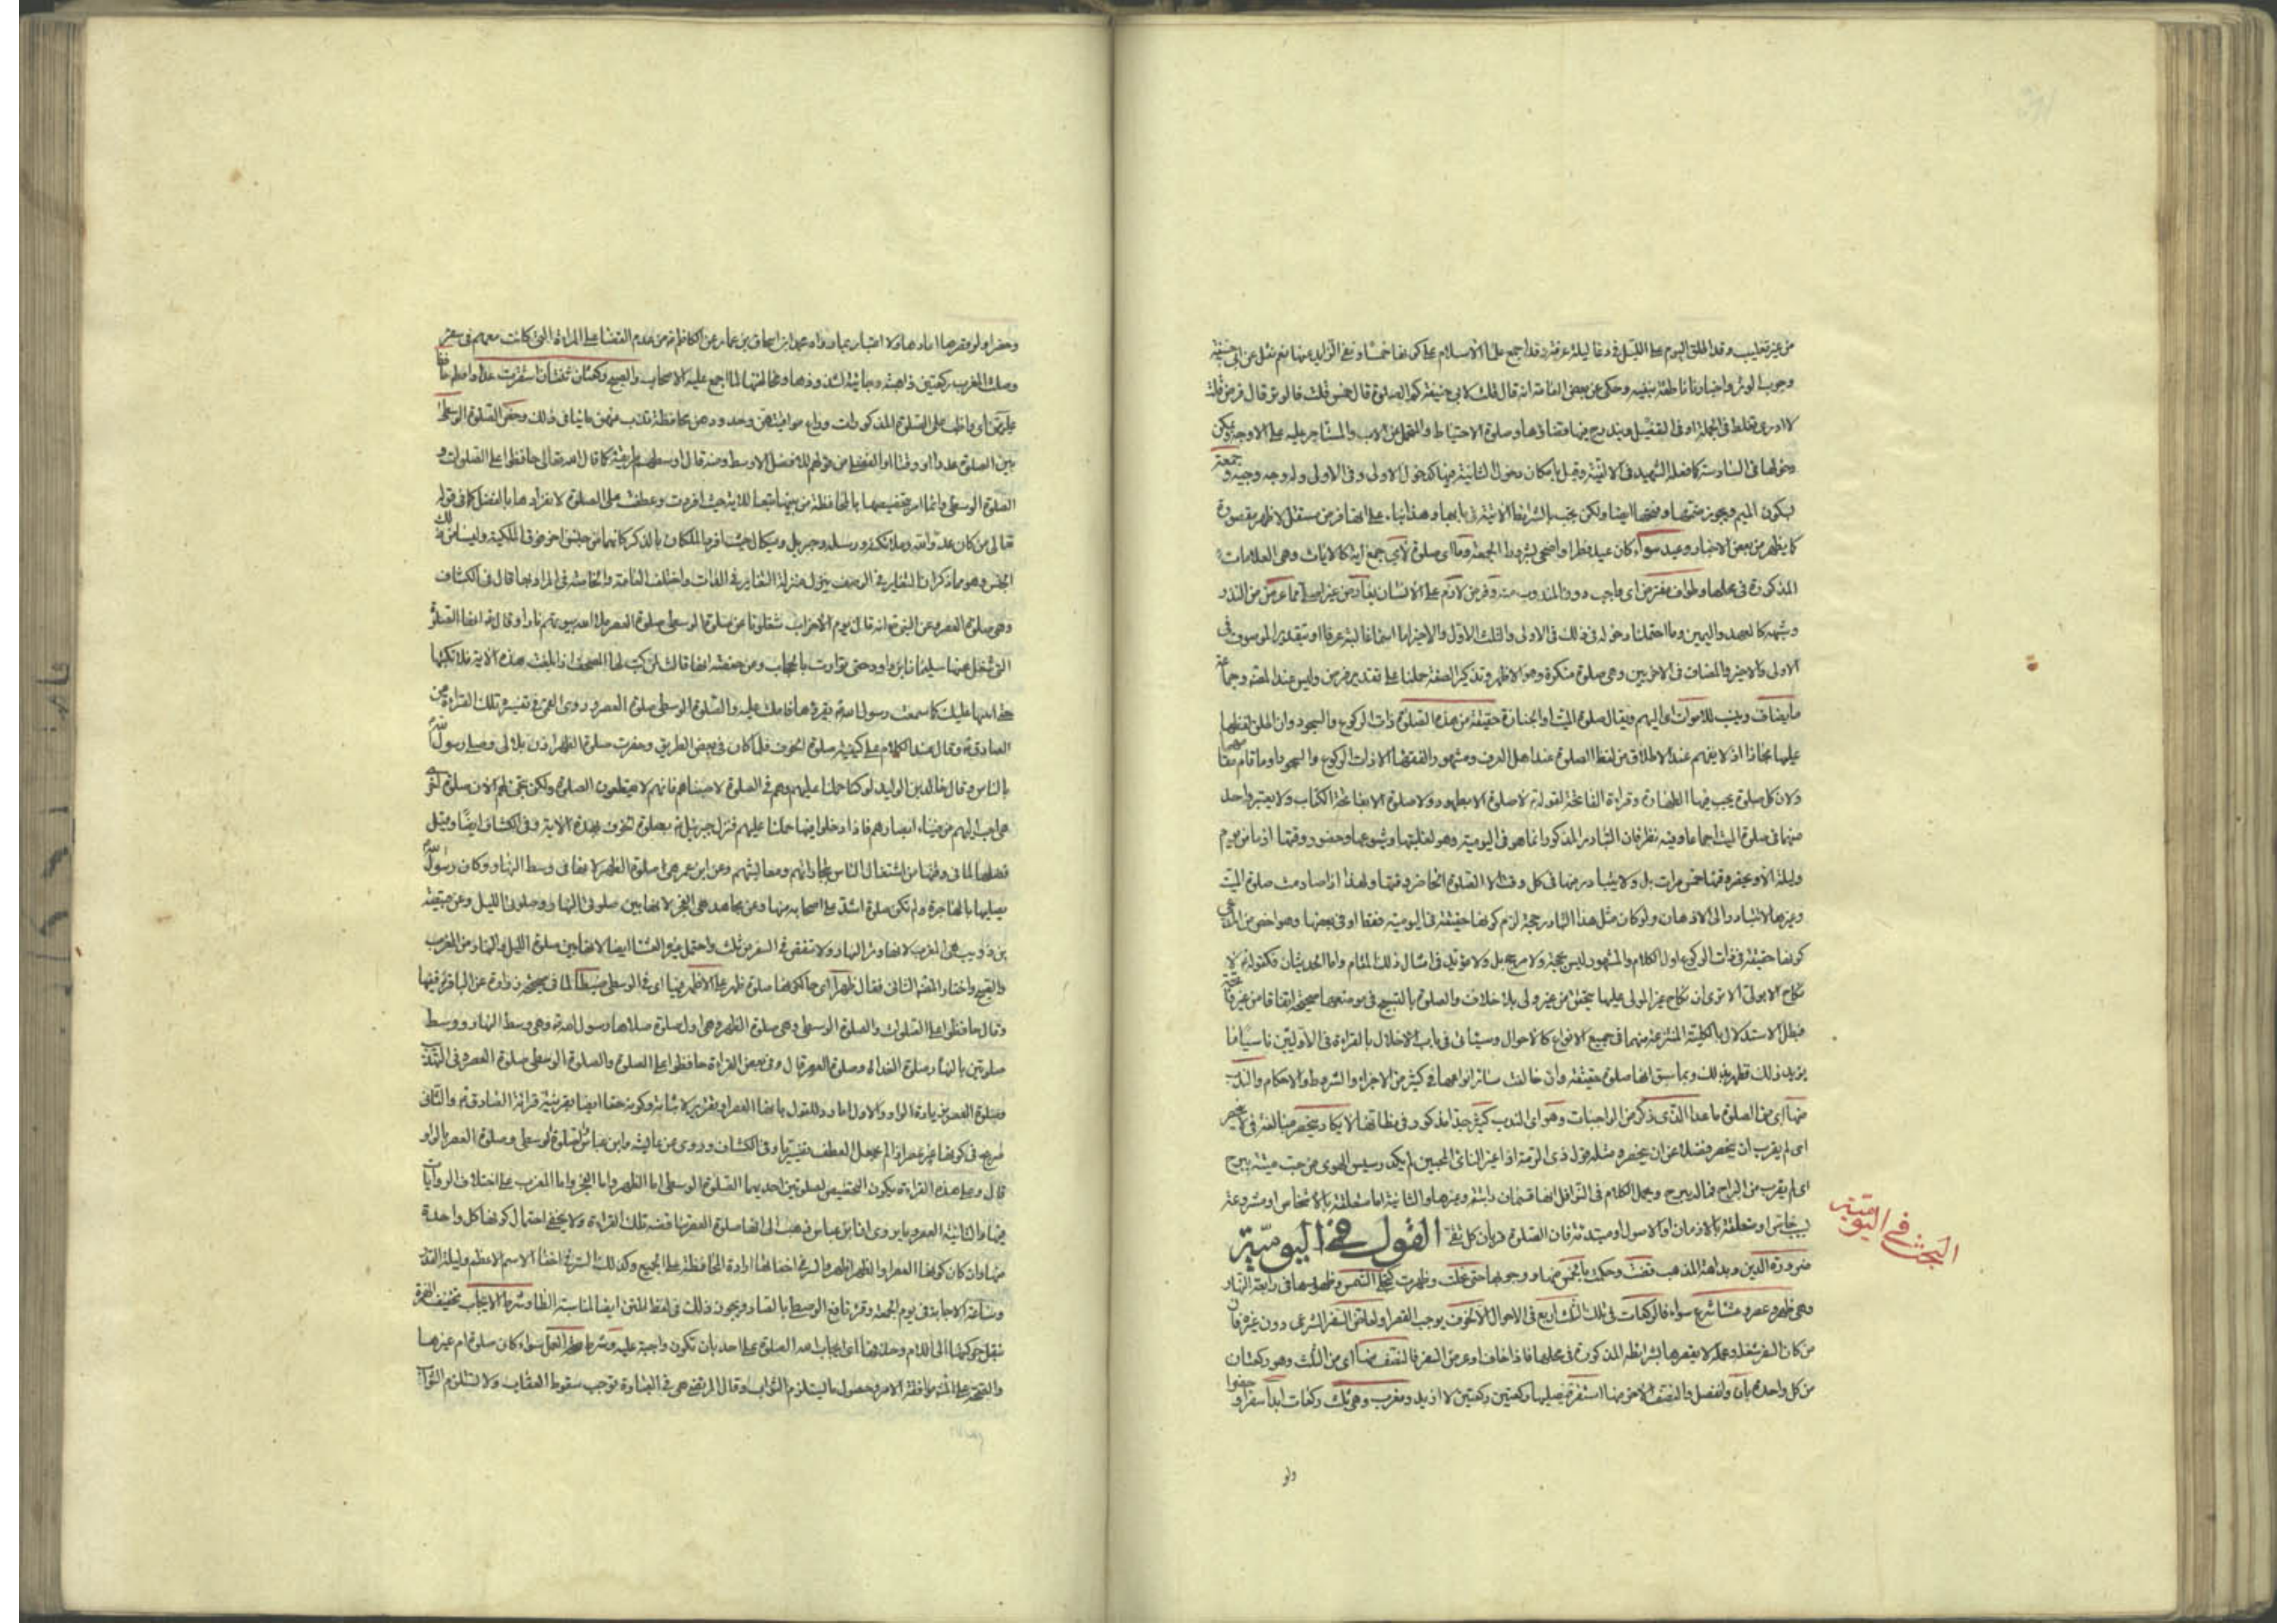 من غير تغليب وقد اطلق اليوم على الليل وقد اجمع علماء الاسلام على كونها خمسا ونفى الزايد عنها نعم نقل عن ابى حنيفة
وجوب الوتر واخبارنا ناطقة بنفيه وحكى عن بعض العامة انه قال قلت لابى حنيفة كم الصلوة قال خمس قلت فالوتر قال فرض قلت
لا ادرى تغلط فى الجملة او فى التفصيل ويندرج فيها قضاؤها وصلوة الاحتياط والمتحمل عن الاب والمستاجر عليه على الاوجه ويمكن
دخولها فى السادسة كما فعله الشهيد فى الالفية وقيل بامكان دخول الثانية فيها كدخول الاولى وفى الاولى وله وجه وجيه وجمعة
بسكون الميم ويجوز ضمها وفتحها ايضا ولكن يجب بالشرايط الاتية فى بابها وهذا بناء على انها فرض مستقل لا ظهر مقصورة
كما يظهر من بعض الاخبار وعيد سواء كان عيد فطر او اضحى بشروط الجمعة وما اى صلوة لآى جمع آية كالايات وهى العلامات
المذكورة فى محلها وطواف مفترض اى واجب دون المندوب منه وفرض لازم على الانسان
وشبهه كالعهد واليمين وما احتملنا دخوله فى ذلك فى الاولى والثلث الاول والاخير
الاولى والاخير والمضاف فى الاخريين وهى صلوة منكرة وهو الاظهر وتذكير الصفة حملنا على تقدير فرض وليس عند المصنف وجماعة
ما يضاف وينسب للاموات او اليهم ويقال صلوة الميت او الجنازة حقيقة من هذه الصلوة ذات الركوع والسجود وان اطلق لفظها
عليها مجازا اذ لا يفهم عند الاطلاق من لفظ الصلوة عند اهل العرف ومشهور الفقهاء الا ذات الركوع والسجود او ما قام مقامهما
ولان كل صلوة يجب فيها الطهارة وقراءة الفاتحة لقوله لا صلوة الا بطهور ولا صلوة الا بفاتحة الكتاب ولا يعتبر واحد
منهما فى صلوة الميت اجماعا وفيه نظر فان التبادر المذكور انما هو فى اليومية وهو لغلبتها وشيوعها وحضور وقتها اذ ما من يوم
وليلة الا ويحضر وقتها خمس مرات بل ولا يتبادر منها فى كل وقت الا الصلوة الحاضر وقتها ولهذا اذا صادفت صلوة الميت
وغيرها لانتبادر الى الاذهان ولو كان مثل هذا التبادر حجة لزم كونها حقيقة فى اليومية فقط او فى بعضها وهو اخص من المدعى
كونها حقيقة فى ذات الركوع اول الكلام والمشهور ليس بحجة ولا مرجح بل ولا مؤيد فى امثال ذلك المقام واما الحديثان فكقوله لا
نكاح الا بولى الا ترى ان نكاح غير المولى عليها يتحقق من غير ولى بلا خلاف والصلوة بالتسبيح فى موضعها صحيحة اتفاقا من غير فاتحة
فبطل الاستدلال بالكلية المنتزعة منهما فى جميع الانواع كالاحوال وسيأتى فى باب الاخلال بالقراءة فى الاوليين ناسيا ما
يزيد ذلك فظهر بذلك وبما سبق انها صلوة حقيقة وان خالفت سائر انواعها فى كثير من الاجزاء والشروط والاحكام والندب
منها اى من الصلوة ما عدا الذى ذكر من الواجبات وهو اى الندب كثير جدا مذكور فى مظانها لا يكاد ينحصر مبالغة فى لا ينحصر
اى لم يقرب ان ينحصر فضلا عن ان ينحصر ومثله قول ذى الرمة اذا غير النائى المحبين لم يكد رسيس الهوى من حب مية يبرح
اى لم يقرب من البراح فما له يبرح ومجمل الكلام فى النوافل انها قسمان راتبة وغيرها والثانية اما متعلقة بالاشخاص او مشروعة
لاسباب خاص او متعلقة بالازمان او الاصول او مبتدئة فان الصلوة قربان كل تقى القول فى اليومية
ضرورة الدين وبداهة المذهب قضت وحكمت بالخمس منها ووجوبها حتى علت وظهرت كتجلى الشمس وظهورها فى رابعة النهار
وهى ظهر وعصر وعشا شرع سواء فالركعات فى تلك الثلث اربع فى الاحوال الا لخوف يوجب القصر او لعارض السفر الشرعى دون غيره فان
من كان السفر شغله وعمله لا يقصرها بشرايطه المذكورة فى محلها فاذا خاف او عرض السفر فالنصف منها اى من الثلث وهو ركعتان
من كل واحدة بان وانفصل والنصف الاخر منها استقر فيصليها ركعتين ركعتين لا ازيد ومغرب وهى ثلث ركعات ابدا سفرا وحضرا
ولو
البحث فى اليومية
وحضرا ولو قصرها اعادها ولا اعتبار بما رواه اسحاق بن عمار عن الكاظم من عدم القضا على المراة التى كانت معهم فى سفر
وصلت المغرب ركعتين ذاهبة وجائية لشذوذها ومخالفتها لما اجمع عليه الاصحاب والصبح ركعتان
بين الصلوة عددا او وقتا او الفضلى من قولهم للافضل الاوسط ومنه قال اوسطهم طريقة كما قال الله تعالى حافظوا على الصلوات و
الصلوة الوسطى وانما امر بتخصيصها بالمحافظة من بينها تبعا للاية حيث افردت وعطفت على الصلوة لانفرادها بالفضل كما فى قوله
تعالى من كان عدوا لله وملائكته ورسله وجبريل وميكال حيث افرد الملكان بالذكر كانهما من جنس اخر فوق الملكية وليسا من ذلك
الجنس وهو مما ذكر ان التغاير فى الوصف ينزل منزلة التغاير فى الذات واختلف العامة والخاصة فى المراد بها قال فى الكشاف
وهى صلوة العصر وعن النبى انه قال يوم الاحزاب شغلونا عن صلوة الوسطى صلوة العصر ملأ الله بيوتهم نارا وقال انها الصلوة
التى شغل عنها سليمان بن داود حتى توارت بالحجاب وعن حفصة انها قالت لمن كتب لها المصحف اذا بلغت هذه الاية فلا تكتبها
حتى امليها عليك كما سمعت رسول الله يقرؤها فاملت عليه والصلوة الوسطى صلوة العصر وروى القمى فى تفسيره تلك القراءة عن
الصادق وقال عند الكلام على كيفية صلوة الخوف فلما كان فى بعض الطريق وحضرت صلوة الظهر اذن بلال وصلى رسول الله
بالناس وقال خالد بن الوليد لو كنا حملنا عليهم وهم فى الصلوة لاصبناهم فانهم لا يقطعون الصلوة ولكن تجئ لهم الان صلوة اخرى
هى احب اليهم من ضياء ابصارهم فاذا دخلوا فيها حملنا عليهم فنزل جبرئيل بصلوة الخوف بهذه الاية وفى الكشاف ايضا وقيل
فضلها لما فى وقتها من اشتغال الناس بتجاراتهم ومعايشهم وعن ابن عمر هى صلوة الظهر لانها فى وسط النهار وكان رسول الله
يصليها بالهاجرة ولم تكن صلوة اشد على اصحابه منها وعن مجاهد هى الفجر لانها بين صلوتى النهار وصلوتى الليل وعن قبيصة
بن ذؤيب هى المغرب لانها وتر النهار ولا تنقص فى السفر من ثلث واحتمل غيره العشا ايضا لانها بين صلوة الليل والنهار من المغرب
والصبح واختار المصنف الثانى فقال ظهرا اى حالكونها صلوة ظهر على الاظهر فيها اى فى الوسطى ضبطا لما فى صحيحة زرارة عن الباقر ففيها
وقال حافظوا على الصلوات والصلوة الوسطى وهى صلوة الظهر وهى اول صلوة صلاها رسول الله وهى وسط النهار ووسط
صلوتين بالنهار صلوة الغداة وصلوة العصر قال وفى بعض القراءة حافظوا على الصلوة والصلوة الوسطى صلوة العصر وفى التهذيب
وصلوة العصر بزيادة الواو
صريح فى كونها غير عصر اذا لم يجعل العطف تفسيريا وفى الكشاف وروى عن عائشة وابن عباس الصلوة الوسطى وصلوة العصر بالواو
قال وعلى هذه القراءة يكون التخصيص لصلوتين احديهما الصلوة الوسطى اما الظهر واما الفجر واما المغرب على اختلاف الروايات
فيها والثانية العصر وبما روى ان ابن عباس ذهب الى انها صلوة العصر ولا يخفى احتمال كونها كل واحدة
منها وان كان كونها العصر او الظهر اظهر والسر فى اخفائها ارادة المحافظة على الجميع وكذلك السر فى اخفا الاسم الاعظم وليلة القدر
وساعة الاجابة فى يوم الجمعة وقرء نافع الوصطى بالصاد ويجوز ذلك فى لفظ المتن ايضا لمناسبة الطا وشرط الايجاب بتخفيف الهمزة
بنقل حركتها الى اللام وحذفها اى ايجاب هذه الصلوة على احد بان تكون واجبة عليه وشرط صحة العمل سواء كان صلوة ام غيرها
والصحة على انها موافقة الامر وحصول ما يستلزم الثواب وقال المرتضى هى فى العبادة توجب سقوط العقاب ولا تستلزم الثواب